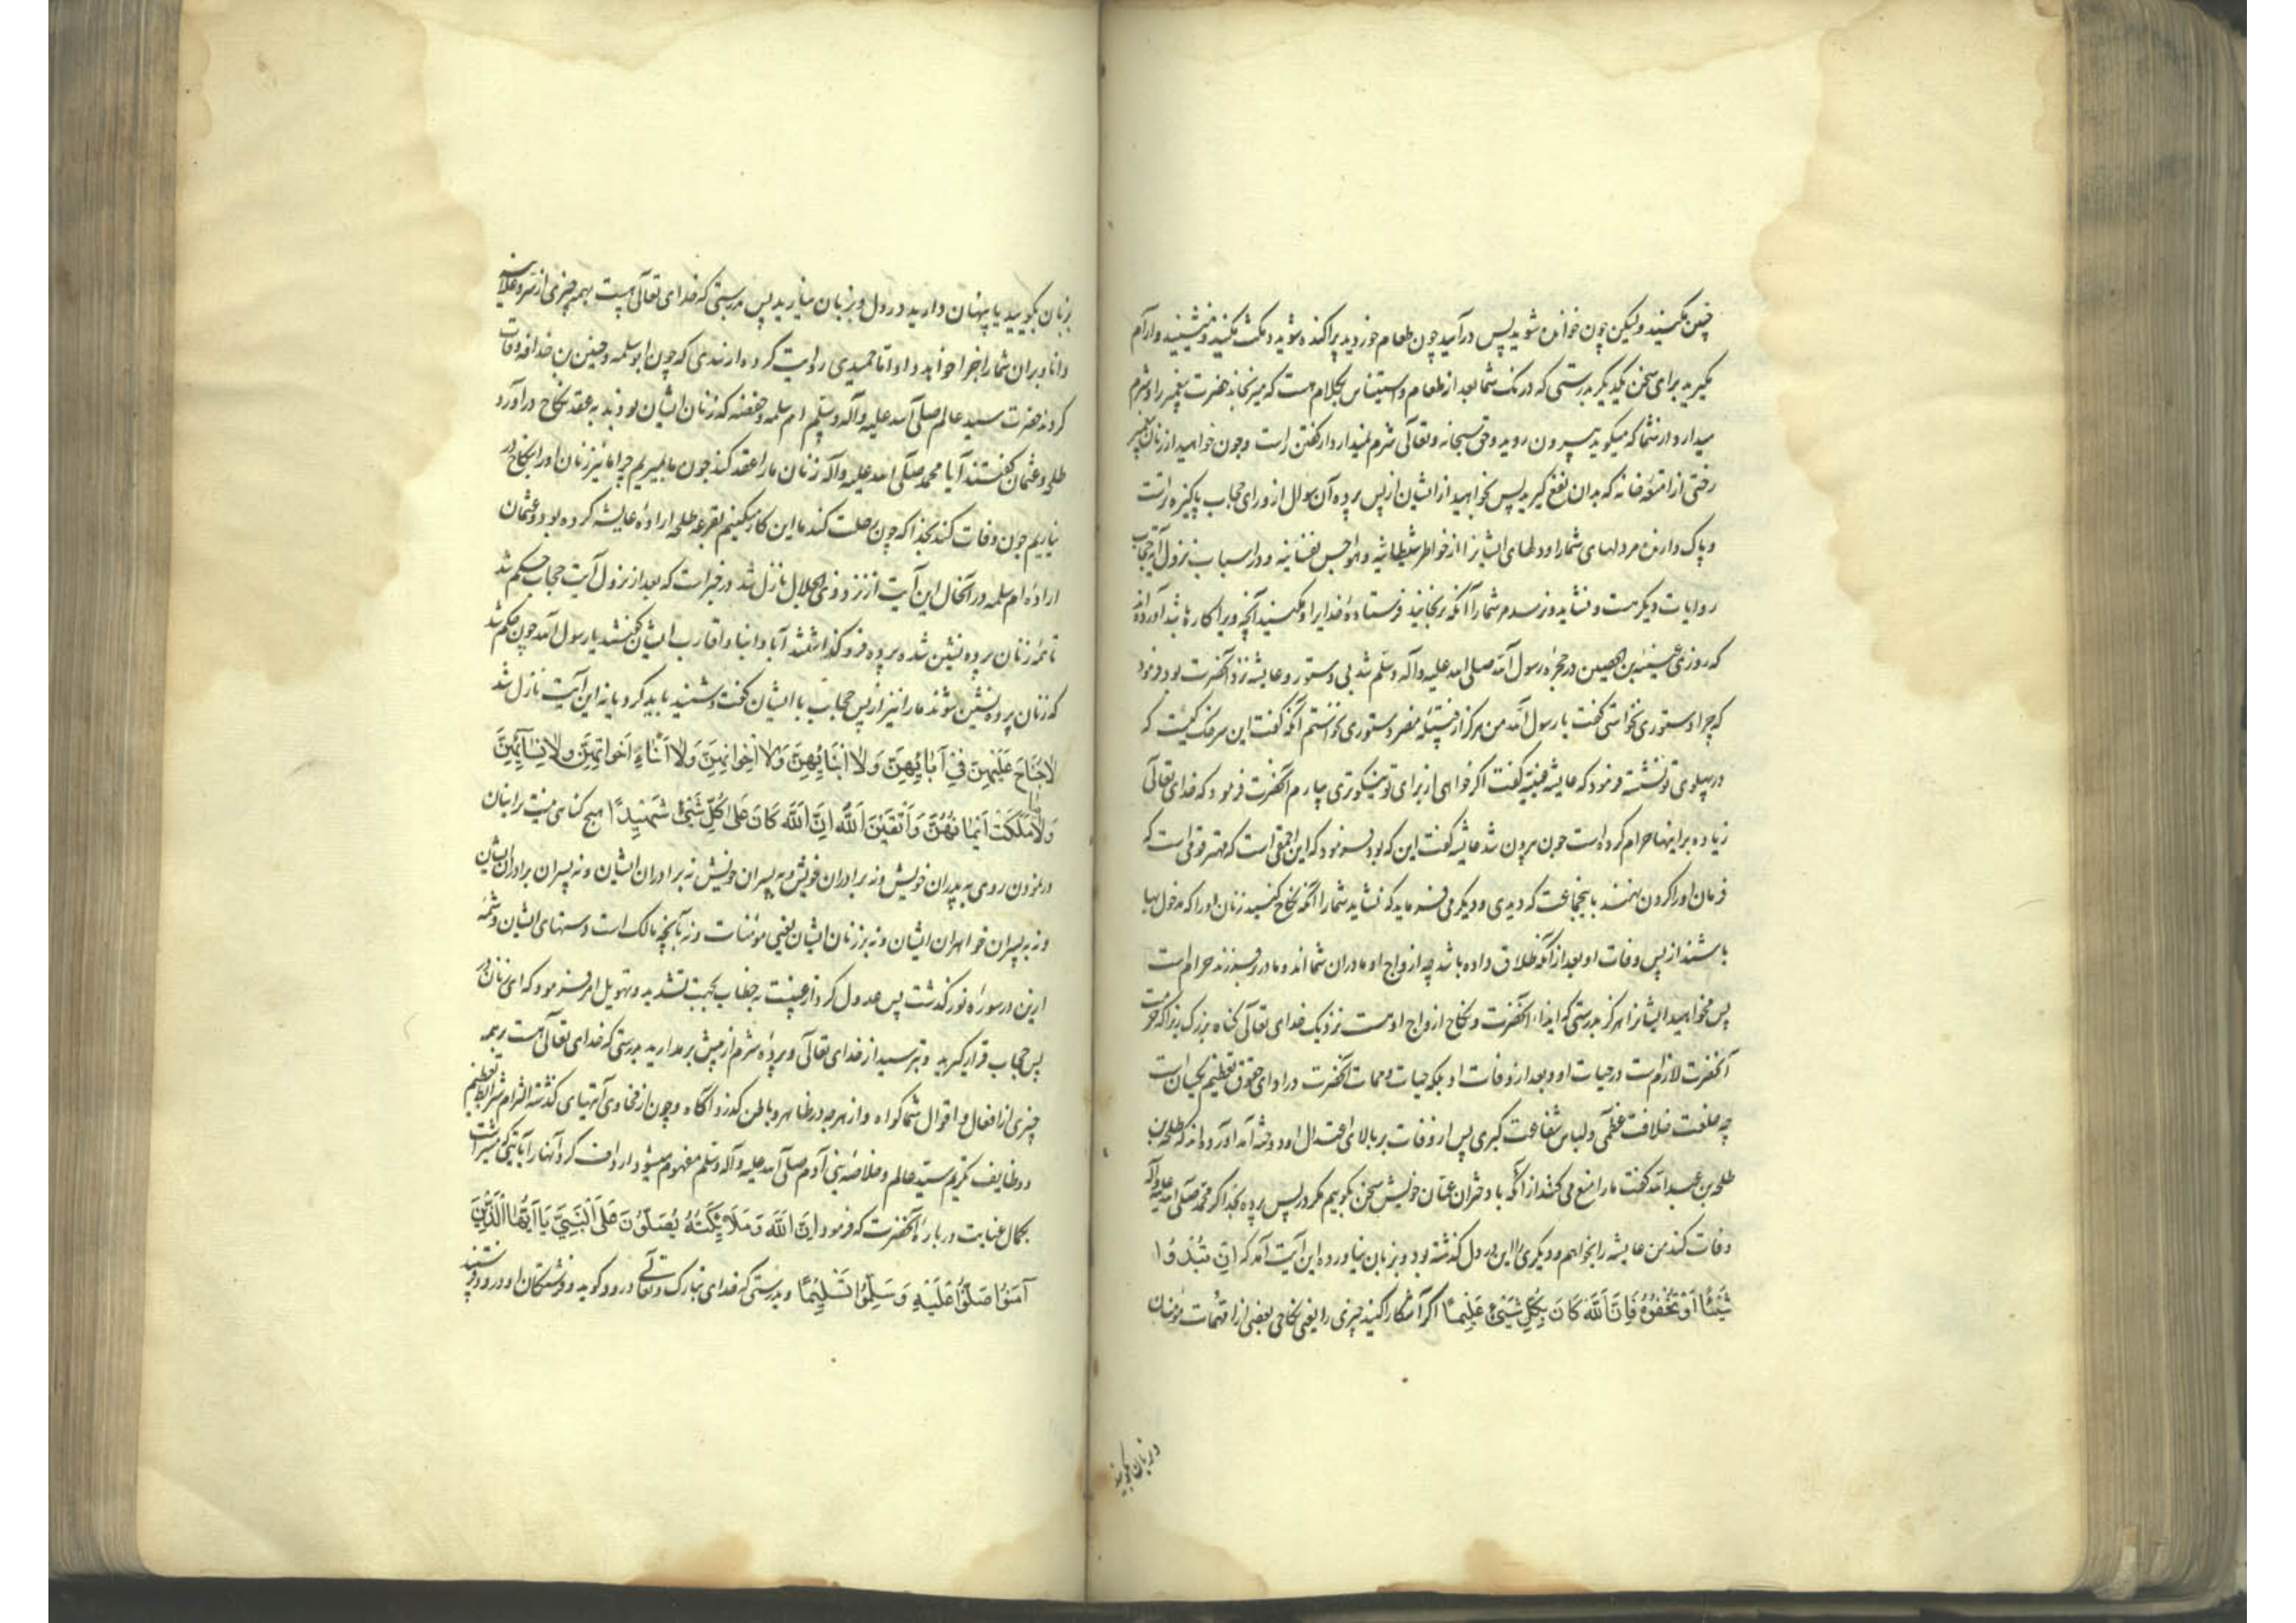 چنین مکنید ولیکن چون خوانده شوید پس درآیید چون طعام خوردید پراکنده شوید و مکث مکنید و منشینید و آرام
مگیرید برای سخن یکدیگر بدرستی که درنک شما بعد از طعام و استیناس بکلام هست که میرنجاند حضرت پیغمبر را و شرم
میدارد از شما که میکوید بیرون روید و حق سبحانه و تعالی شرم نمیدارد از کفتن راست و چون خواهید از زنان پیغمبر
رختی از امتعهٔ خانه که بدان نفع کیرید پس بخواهید از ایشان از پس پرده آن سوال از ورای حجاب پاکیزه تراست
و پاک دارنده مر دلهای شما را و دلهای ایشانرا از خواطر شیطانیه و هواجس نفسانیه و در اسباب نزول آیه حجاب
روایات دیکر هست و نشاید و نرسد مر شما را آنکه برنجانید فرستادهٔ خدایرا و مکنید آنچه ویرا کاره باشد آورده‌اند
که روزی عیینة بن حصین در حجرهٔ رسول الله صلی الله علیه وآله وسلم شد بی دستور و عایشه نزد آنحضرت بود فرمود
که چرا دستوری نخواستی کفت یا رسول الله من هرکز از هیچ مضر دستوری نخواستم آنکه کفت این سرخک کیست که
در پهلوی تو نشسته فرمود که عایشه عیینه کفت اکر خواهی از برای تو نیکوتری بیارم آنحضرت فرمود که خدای تعالی
زیاده بر اینها حرام کرده است چون بیرون شد عایشه کفت این که بود فرمود که این احمقی است که مهتر قومی است که
فرمان او را کردن نهند باین جماعت که دیدی و دیکر می فرماید که نشاید شما را آنکه نکاح کنید زنان او را که مدخول بها
باشند از پس وفات او بعد از آنکه طلاق داده باشد چه ازواج او مادران شمااند و مادر بر فرزند حرام است
پس مخواهید ایشانرا هرکز بدرستی که ایذاء آنحضرت و نکاح ازواج او هست نزدیک خدای تعالی کناه بزرک زیرا که حرمت
آنحضرت لازم است در حیات او و بعد از وفات او بلکه حیات و ممات آنحضرت در ادای حقوق تعظیم یکسان است
چه خلعت خلافت عظمی و لباس شفاعت کبری پس از وفات بر بالای اعتدال او دوخته آمد آورده‌اند که طلحة بن
طلحة بن عبدالله کفت ما را منع می کنند از آنکه با دختران عمان خویش سخن بکوییم مکر در پس پرده بخدا اکر محمد صلی الله علیه وآله
وفات کند من عایشه را بخواهم و دیکری را این در دل کذشته بود و بزبان نیاورده این آیت آمد که ان تبدوا
شَیْئًا اَوْ تُخْفُوهُ فَاِنَّ اللّٰهَ کَانَ بِکُلِّ شَیْءٍ عَلِیمًا اکر آشکارا کنید چیزی را یعنی نکاح بعضی از امهات مؤمنان
و بزبان بکویید
بزبان بکویید یا پنهان دارید در دل و بزبان نیارید پس بدرستی که خدای تعالی هست بهمه چیزی از سر و علانیه
دانا و بران شما را جزا خواهد داد اما حمیدی روایت کرده از سدی که چون ابو سلمه و خنیس بن حذافه وفات
کردند حضرت سید عالم صلی الله علیه وآله وسلم ام سلمه و حفصه که زنان ایشان بودند به عقد نکاح درآورد
طلحه و عثمان کفتند آیا محمد صلی الله علیه وآله زنان ما را عقد کند چون ما بمیریم چرا ما نیز زنان او را بنکاح در
نیاریم چون وفات کند بخدا که چون رحلت کند ما این کار میکنیم بقرعه طلحه ارادهٔ عایشه کرده بود و عثمان
ارادهٔ ام سلمه در آنحال این آیت از نزد ذی الجلال نازل شد در خبراست که بعد از نزول آیت حجاب حکم شد
تا همه زنان پرده نشین شده پرده فرو کذاشتند آبا و ابنا و اقارب ایشان کفتند یا رسول الله چون حکم شد
که زنان پرده نشین شوند ما را نیز از پس حجاب با ایشان کفت و شنید باید کرد یا نه این آیت نازل شد
لَا جُنَاحَ عَلَیْهِنَّ فِی آبَائِهِنَّ وَلَا اَبْنَائِهِنَّ وَلَا اِخْوَانِهِنَّ وَلَا اَبْنَاءِ اَخَوَاتِهِنَّ وَلَا نِسَائِهِنَّ
وَلَا مَا مَلَکَتْ اَیْمَانُهُنَّ وَاتَّقِینَ اللّٰهَ اِنَّ اللّٰهَ کَانَ عَلَی کُلِّ شَیْءٍ شَهِیدًا هیچ کناهی نیست بر اینان
در نمودن روی به پدران خویش و نه برادران خویش و نه پسران خویش نه برادران ایشان و نه پسران برادران ایشان
و نه به پسران خواهران ایشان و نه بر زنان ایشان یعنی مؤمنات و نه بآنچه مالک است دستهای ایشان و شمهٔ
ازین در سورهٔ نور کذشت پس عدول کرد از غیبت به خطاب بجهت تشدید و تهویل امر فرمود که ای زنان در
پس حجاب قرار کیرید و بترسید از خدای تعالی و پردهٔ شرم از پیش برمدارید بدرستی که خدای تعالی هست بر همه
چیزی از افعال و اقوال شما کواه و از هر چه در ظاهر و باطن کذرد آکاه و چون از فحاوی آیتهای کذشته التزام شرایط تعظیم
و وظایف تکریم سید عالم و خلاصهٔ بنی آدم صلی الله علیه وآله وسلم مفهوم میشود ارداف کرد آنها را بآیتی که مشیر است
بکمال عنایت دربارهٔ آنحضرت که فرمود اِنَّ اللّٰهَ وَمَلَائِکَتَهُ یُصَلُّونَ عَلَی النَّبِیِّ یَا اَیُّهَا الَّذِینَ
آمَنُوا صَلُّوا عَلَیْهِ وَسَلِّمُوا تَسْلِیمًا و بدرستی که خدای تبارک و تعالی درود کوید و فرشتکان او درود فرستند